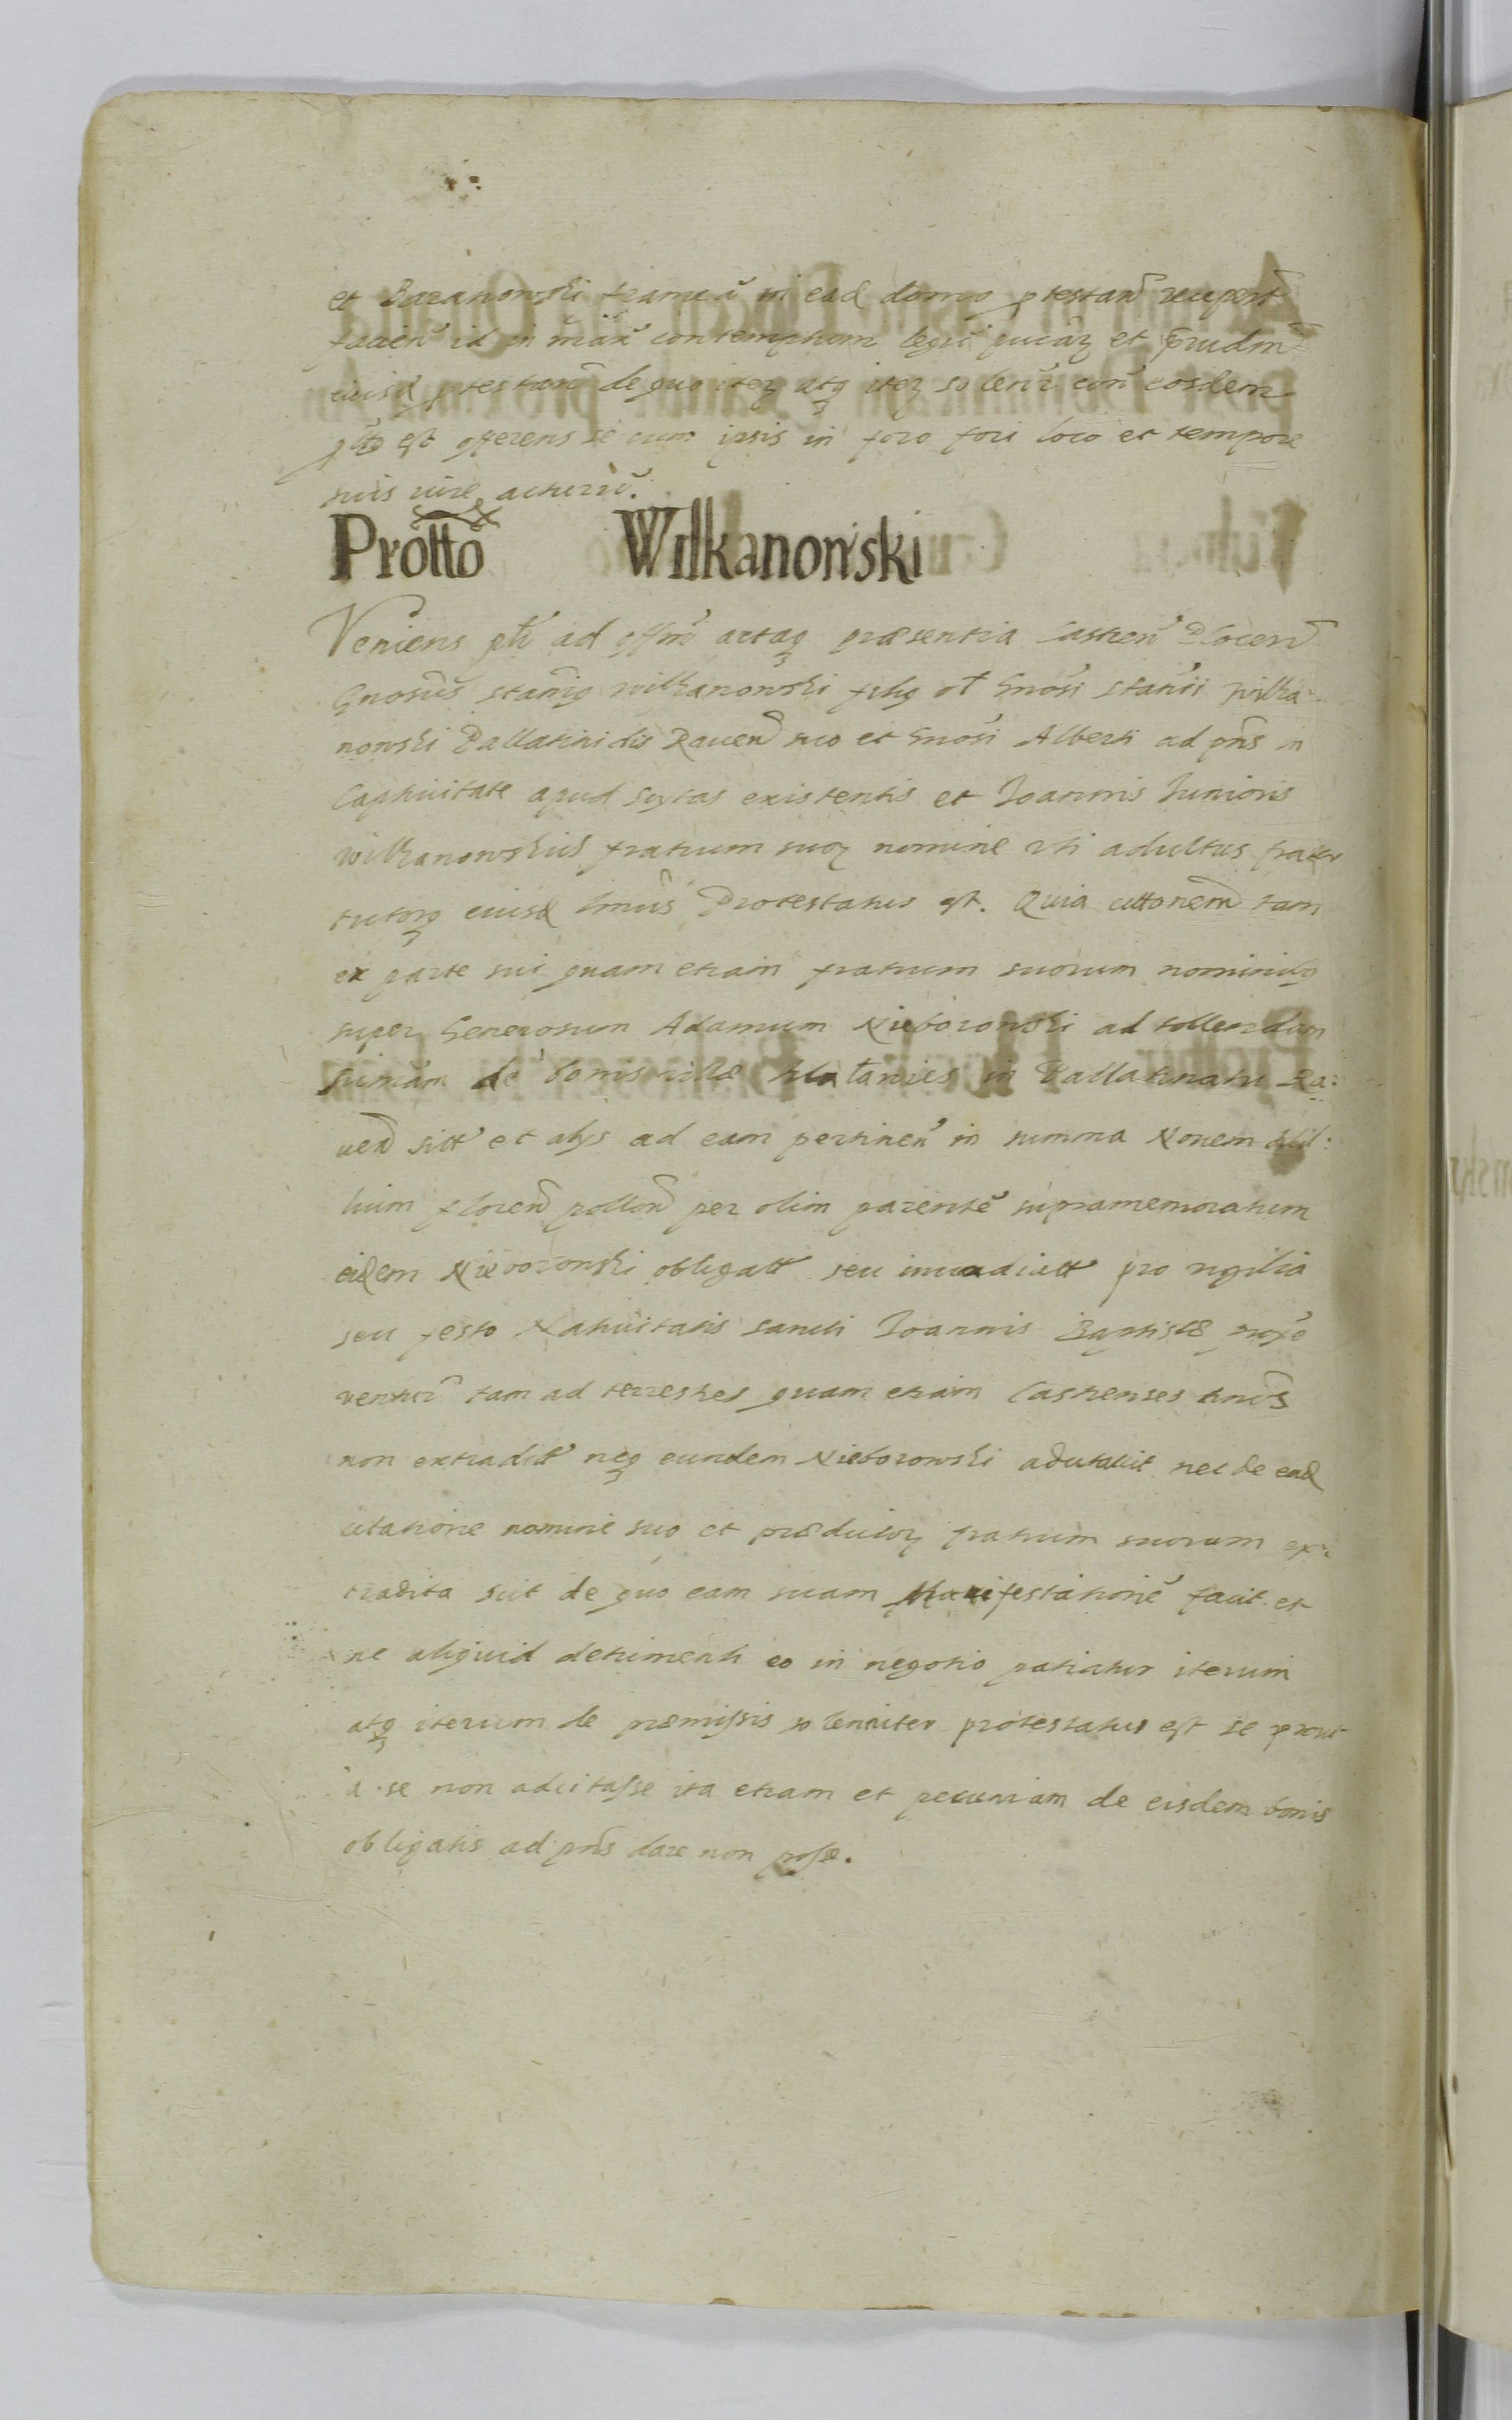 et Baranowski frameā in ead domo ptestanť recepert
facień id in maň contemptum legū puca℞ et prudm̄
eiusd ptestanť de quo ite℞ atq̨ ite℞ soleňr coň eosdem
ptto est offerens se cum ipsis in foro fori loco et tempore
suis iure acturū.
Prottō Wilkanowski
Veniens pti ad offm̄ actaq̨ præsentia Castreň Plocen̄
Gnosus̄ Stanis wilkanowski filius ol Gnosi Stanii wilka-
nowski Pallatinidis Raven̄ suo et Gnosi Alberti ad pn̄s in
Captivitate apud Scytas existentis et Joannis Junioris
wilkanowskich fratrum suo℞ nomine uti adultus frater
tutorq̨ eiusd Protestatus est. Quia cittonem̄ tam
ex parte sui quam etiam fratrum suorum nominibus
super Generosum Adamum Nieborowski ad tollendam
sum̄am de bonis villæ in Pallatinatu Ra:
ven̄ sitť et alys ad eam pertineň in summa Nonem Mil:
lium floren̄ pollon̄ per olim parentē supramemoratum
eidem Nieborowski obligatt seu invadiatt pro vigilia
seu festo Nativitatis sancti Joannis Baptistæ prox̄e
ventur̄ tam ad terrestres quam etiam Castrenses
non extradit neq̨ eundem Nieborowski adcitavit nec de ead
citatione nomine suo et prædicto℞ fratrum suorum ex-
tradita scit de quo eam suam Manifestationē facit et
ne aliquid detrimenti eo in negotio patiatur iterum
atq̨ iterum de præmissis solenniter protestatus est se prout
a se non adcitasse ita etiam et pecuniam de eisdem bonis
obligatis ad pn̄s dare non posse.